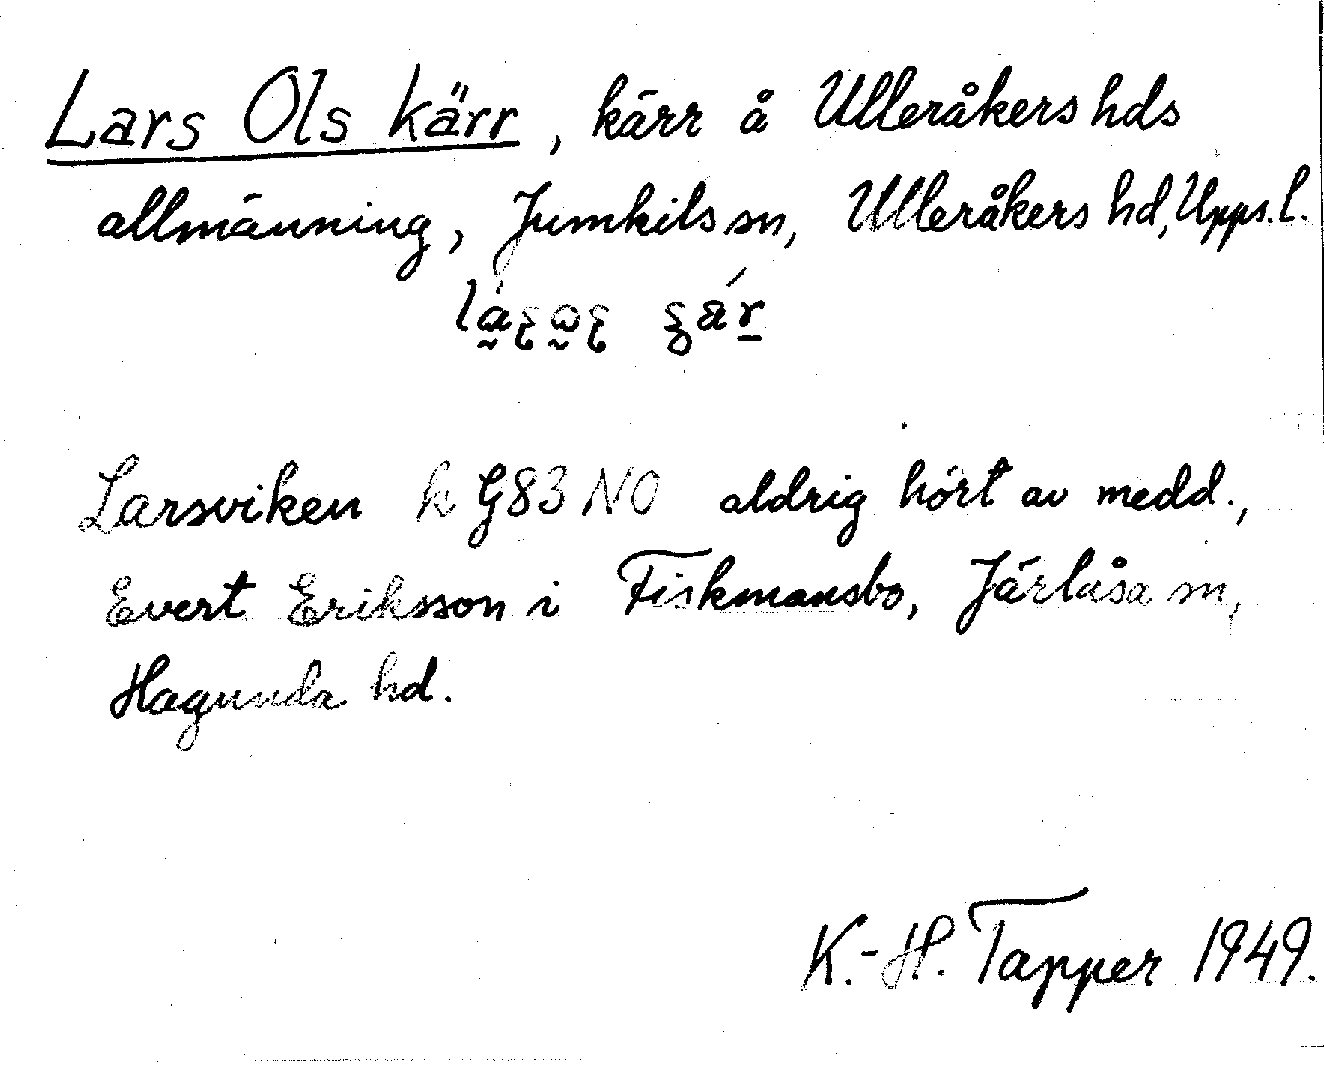 Lars Ols kärr, kärr å Ulleråkers hds
allmänning, Jumkils sn, Ulleråkers hd, Upps. l.
Larsviken k G83 NO aldrig hört av medd.,
Evert Eriksson i Fiskmansbo, Järlåsa sn,
Hagunda hd.
K.-H. Tapper 1949.